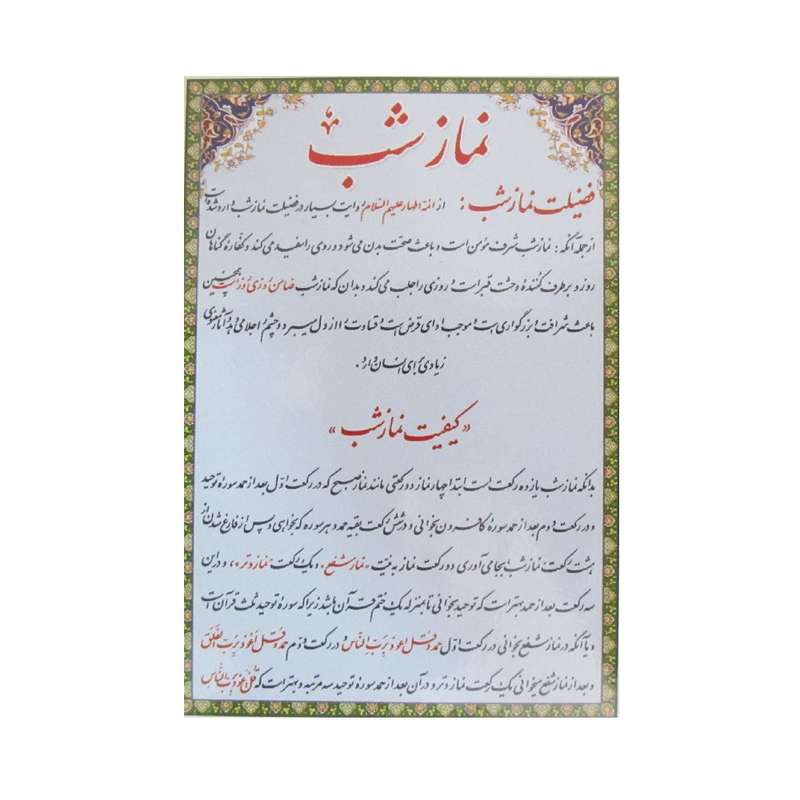 نماز شب
فضیلت نماز شب : از ائمه اطهار علیهم السلام روایت بسیار در فضیلت نماز شب وارد شده است
از جمله آنکه : نماز شب شرف مؤمن است و باعث صحت بدن می شود و روی را سفید می کند و کفاره گناهان
روز و برطرف کننده وحشت قبر است و روزی را جلب می کند و بدان که نماز شب ضامن روزی روز است همچنین
باعث شرافت و بزرگواری است و موجب ادای قرض است و قساوت را از دل میبرد و چشم را جلا می دهد و آثار معنوی
زیادی برای انسان دارد .
« کیفیت نماز شب »
بدانکه نماز شب یازده رکعت است ابتدا چهار نماز دو رکعتی مانند نماز صبح که در رکعت اوّل بعد از حمد سورۀ توحید
و در رکعت دوم بعد از حمد سورۀ کافرون بخوانی و در شش رکعت بقیه حمد و هر سوره که بخواهی و پس از فارغ شدن از
هشت رکعت نماز شب بجا می آوری دو رکعت نماز به نیّت «نماز شفع» و یک رکعت «نماز وتر» ، و در این
سه رکعت بعد از حمد بهتر است که توحید بخوانی تا بمنزله یک ختم قرآن باشد زیرا که سورۀ توحید ثلث قرآن است
و یا آنکه در نماز شفع بخوانی در رکعت اوّل حمد و قل اعوذ بربّ النّاس و در رکعت دوّم حمد و قل اعوذ بربّ الفلق
و بعد از نماز شفع میخوانی یک رکعت نماز وتر و در آن بعد از حمد سورۀ توحید سه مرتبه و بهتر است که قل اعوذ بربّ النّاس